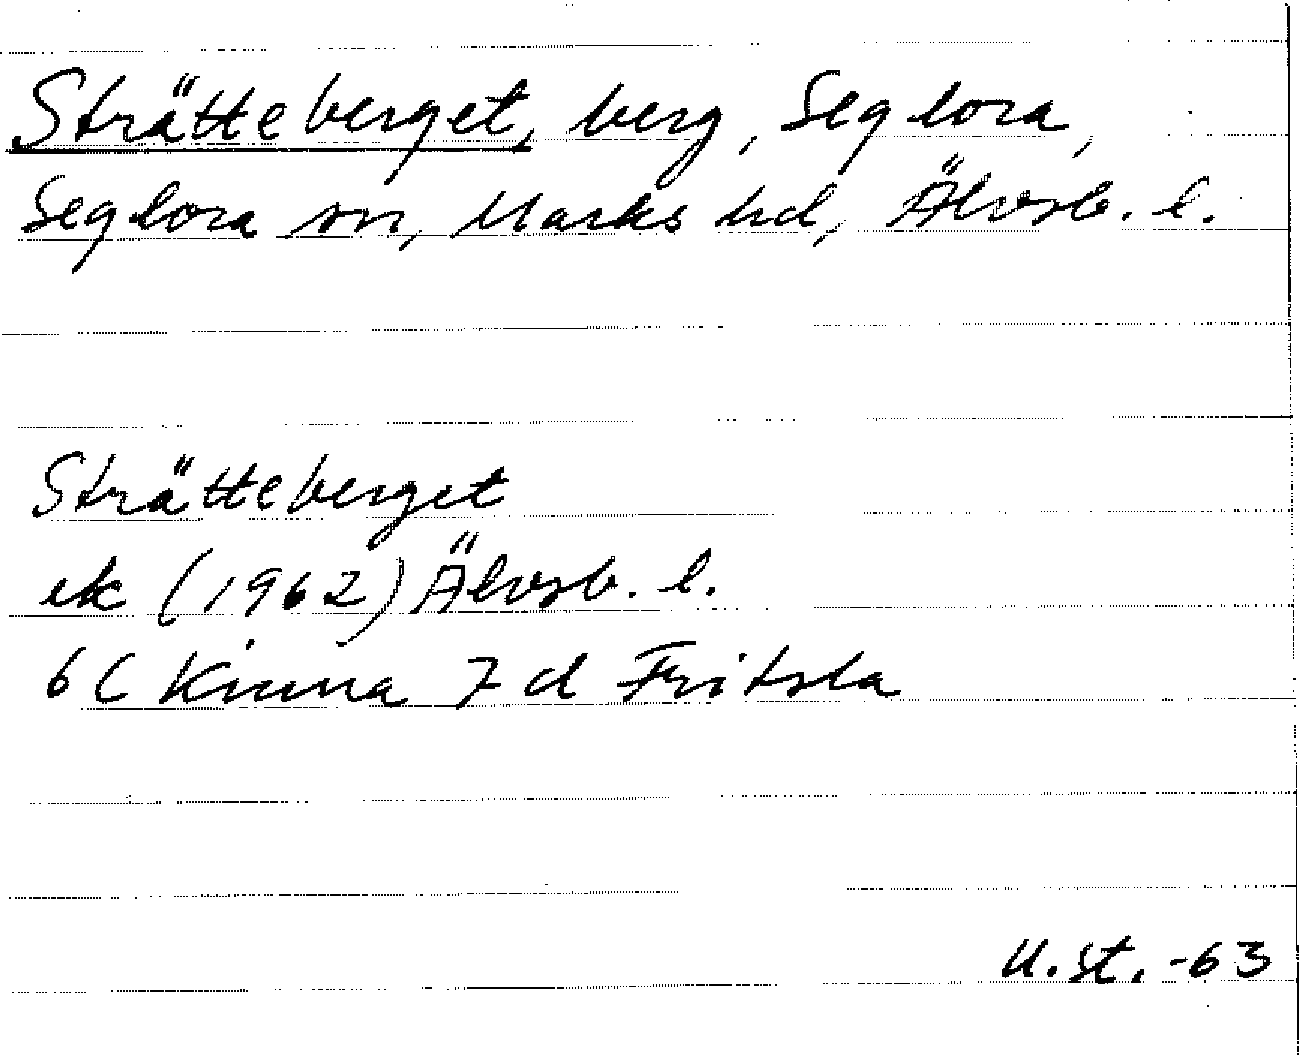 Strätteberget, berg, Seglora,
Seglora sn, Marks hd, Älvsb. l.
Strätteberget
ek (1962) Älvsb. l.
6C Kinna 7d Fritsla
U.st. -63